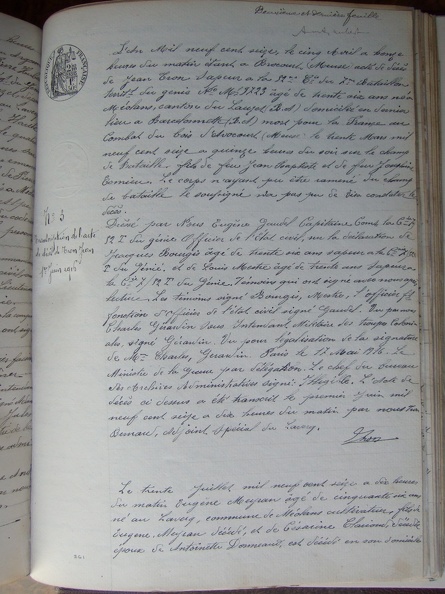 Deuxième et dernière feuille
L'an mil neuf cent seize, le cinq Avril à onze
heures du matin étant à Meuse acte de décès
de Jean Tron Sapeur à la 12me Cie du Bataillon
du génie No Mle 3223 âgé de trente six ans né à
Méolans, canton du Lauzet (B.A) domicilié en dernier
lieu à Barcelonnette (B.A) mort pour la France au
Combat du bois d'Avocourt (Meuse) le trente Mars mil
neuf cent seize à quinze heures du soir sur le champ
de bataille fils de feu Jean Baptiste et de feu Joséphine
Le corps n'ayant pu être ramené du champ
de bataille le soussigné n'a pas pu de constater le
décès.
Dressé par Nous Eugène Gaudel Capitaine Comt la Cie
du génie Officier de l'état civil, sur la déclaration de
Jacques Bourgis âgé de trente six ans sapeur à la Cie
du Génie, et de Louis Mestre âgé de trente ans Sapeur
à la Cie du Génie Témoins qui ont signé avec nous après
lecture. Les témoins signé Bourgis, Mestre, l'officier ff
fonction d'officier de l'état civil signé Gaudel. Vu par nous
Charles Gérardin Sous Intendant Militaire des troupes coloni
ales, signé Gérardin. Vu pour légalisation de la signature
de Mr Charles, Gérardin Paris le 17 Mai 1916. Le
Ministre de la Guerre par délégation. Le chef du bureau
des Archives Administratives signé: L'acte de
décès ci dessus a été transcrit le premier Juin mil
neuf cent seize à dix heures du matin par nous Tron
adjoint Spécial du Laverq.
Tron
No 3
Transcription de l'acte
de décès de Tron Jean
1er Juin 1916
Le trente Juillet mil neuf cent seize à dix heures
du matin Eugène Meyran âgé de cinquante six ans
né au Laverq, commune de Méolans cultivateur, fils de
Eugène, Meyran décédé, et de Césarine Clariond, décédée
époux de Antoinette est décédé en son domicile